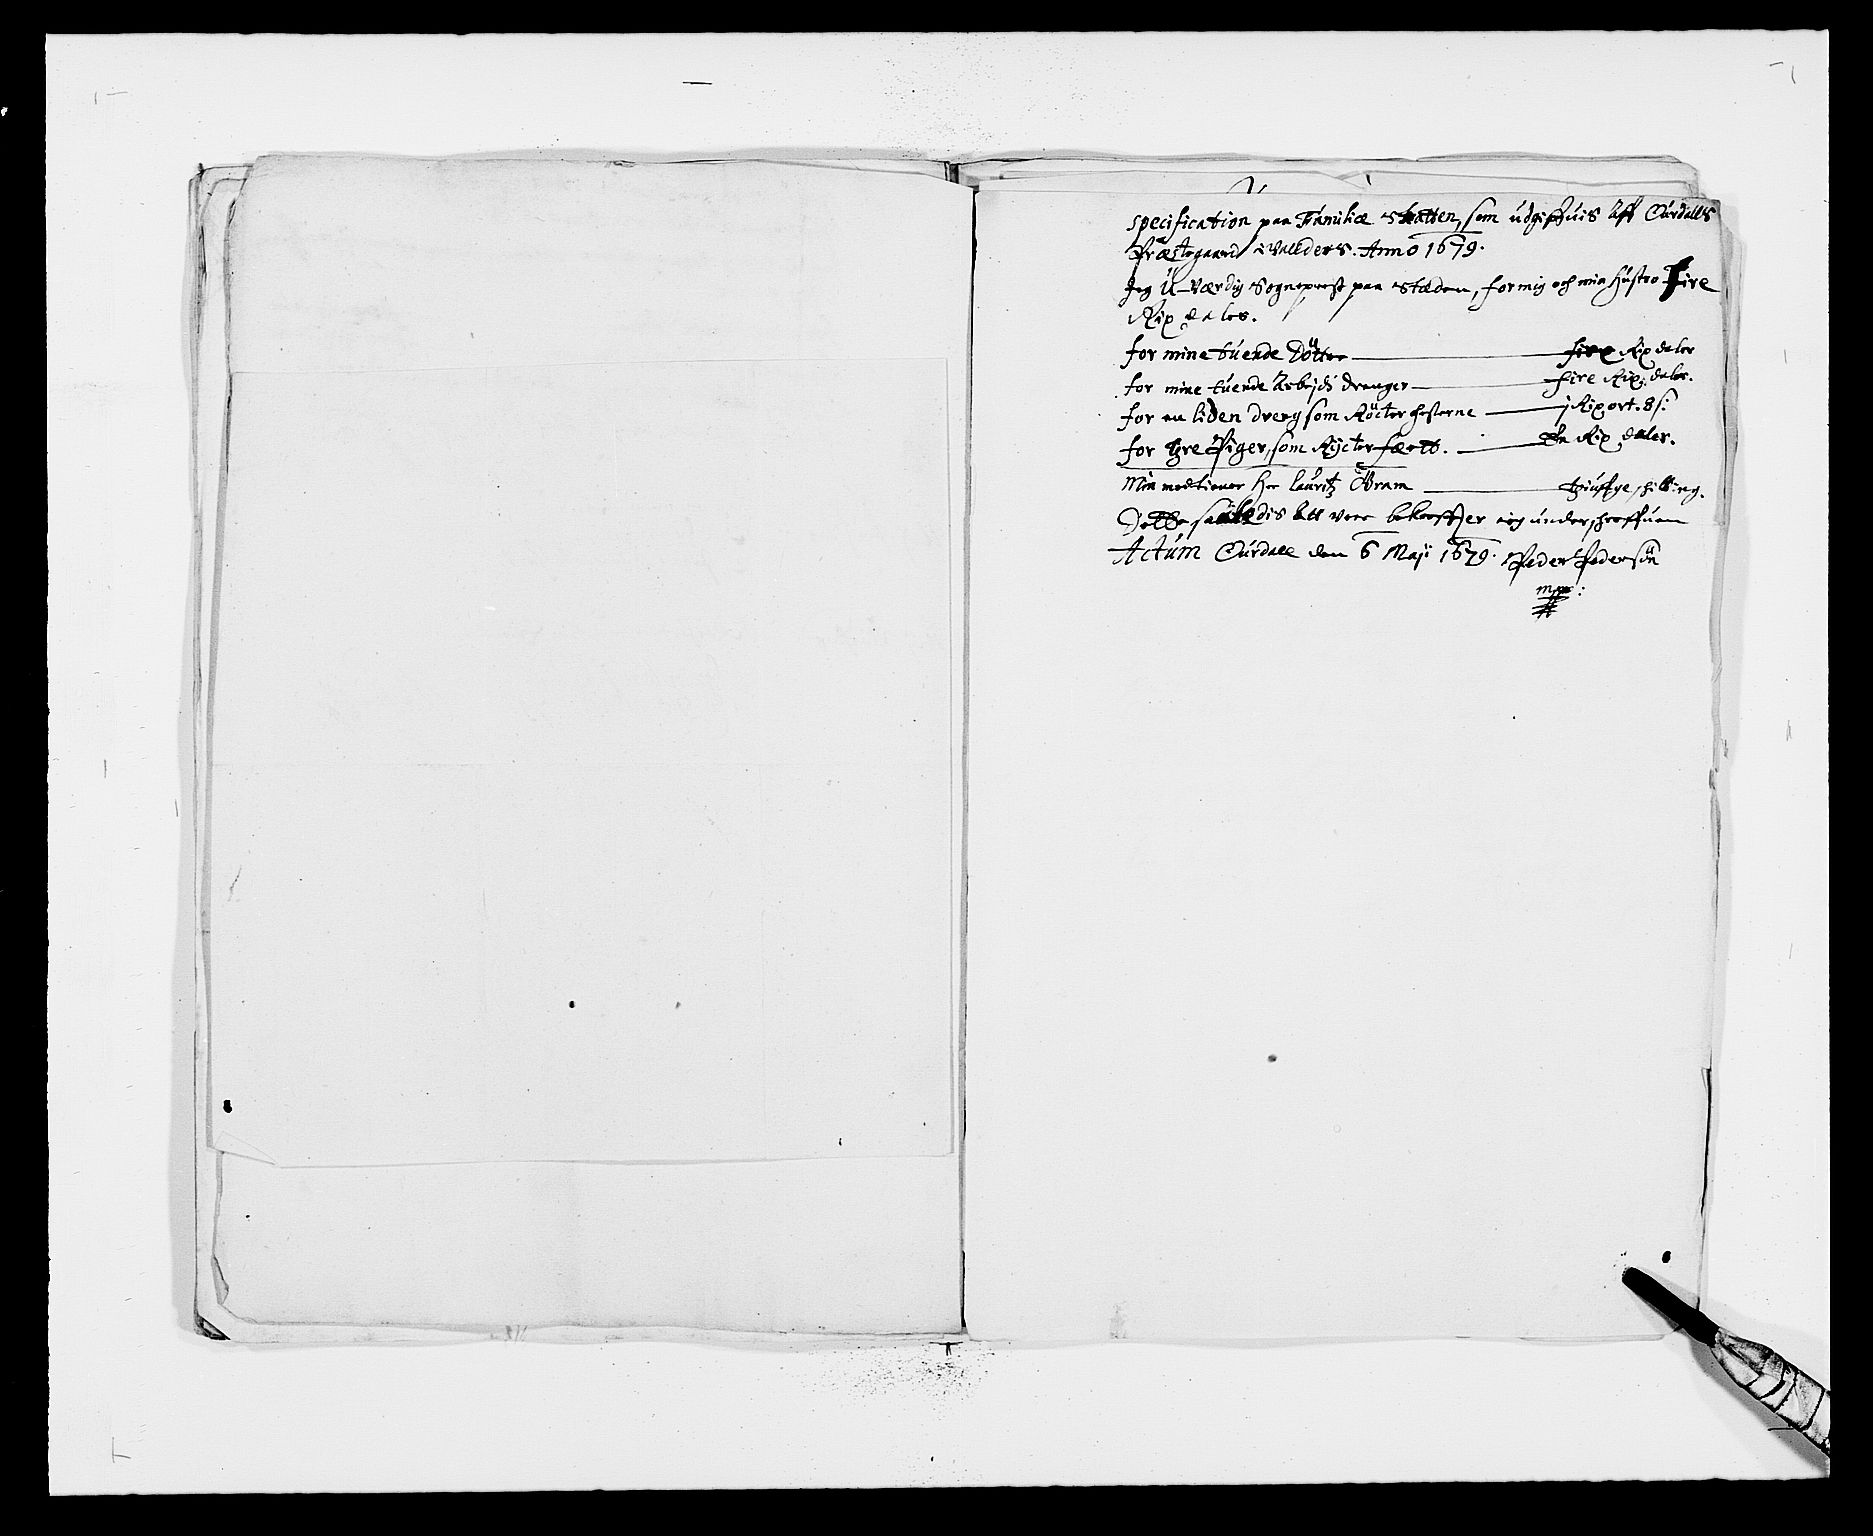 specification paa Familiæ skatten, som udgiffuis aff Ourdalls
Præstegaard i Vallders. Anno 1679.
Jeg U-værdig Sogneprest paa stæden, for mig och min hústro Fire
Rix daler.
for mine túende Dötter fire Rix daler
for mine túende Arbejds drenger fire Rix daler.
for en liden dreng som Röcter hesterne j Rix ort. 8 s:
for tre Piger, som Röcter fæett. En Rix daler.
Min medtiener Her Lauritz Bram tiúffge shilling.
Dette saaledis att vere bekreffter ieg underschreffuen
Actúm Oúrdall den 6 Maji 1679. Peder Pedersön
mpr: